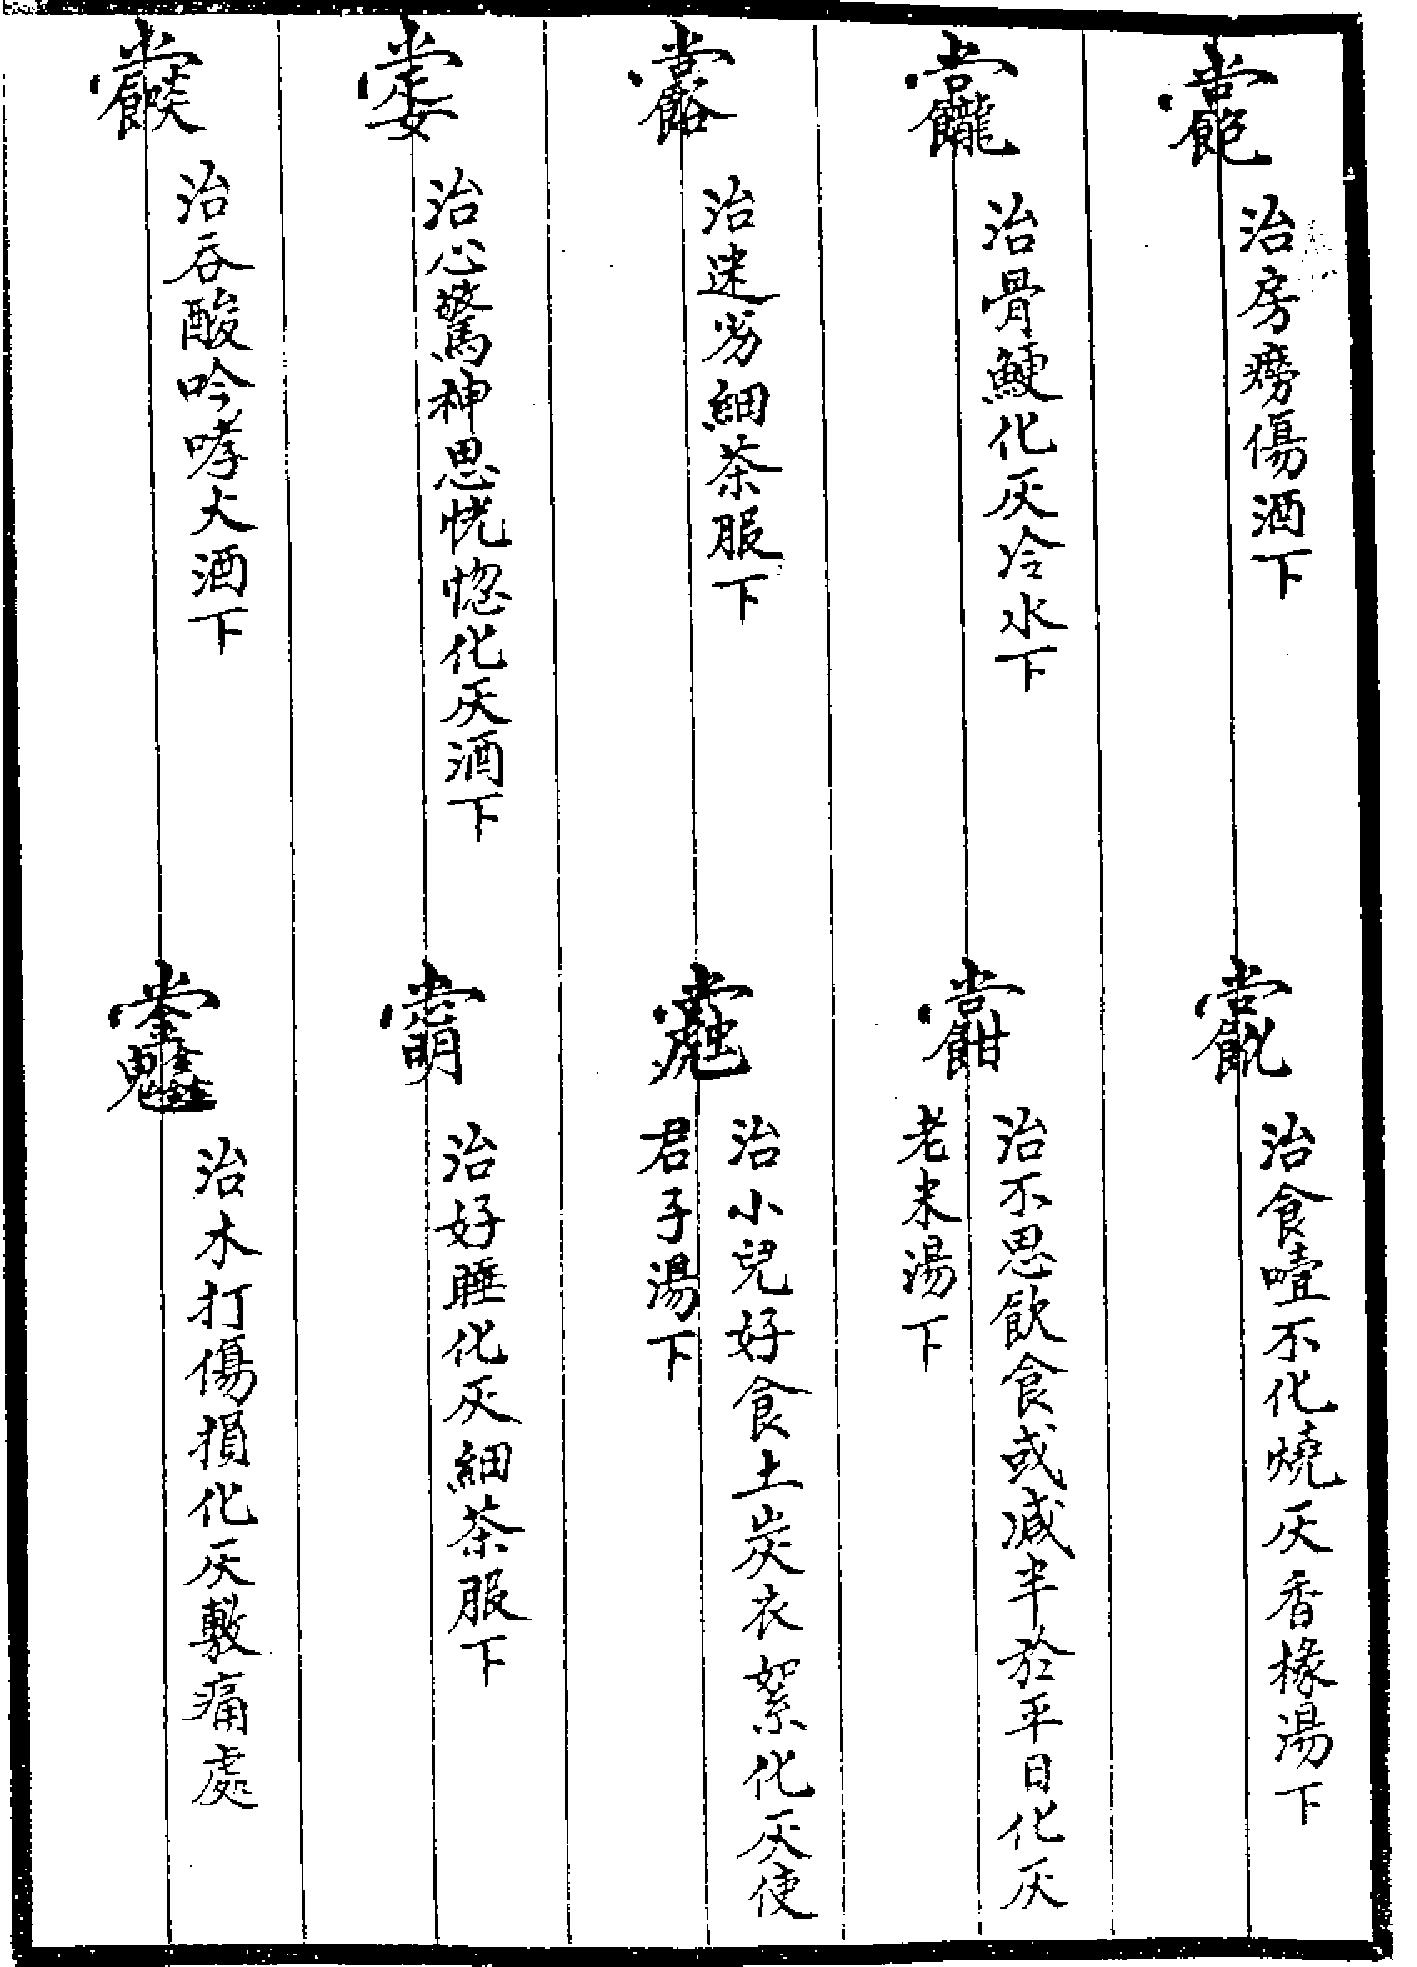 治房癆傷酒下
治食噎不化燒灰香椽湯下
治骨鯁化灰冷水下
治不思飲食或減半於平日化灰
老米湯下
治迷劣細茶服下
治小兒好食土炭衣絮化灰使
君子湯下
治心驚神思恍惚化灰酒下
治好睡化灰細茶服下
治吞酸吟哮大酒下
治木打傷損化灰敷痛處